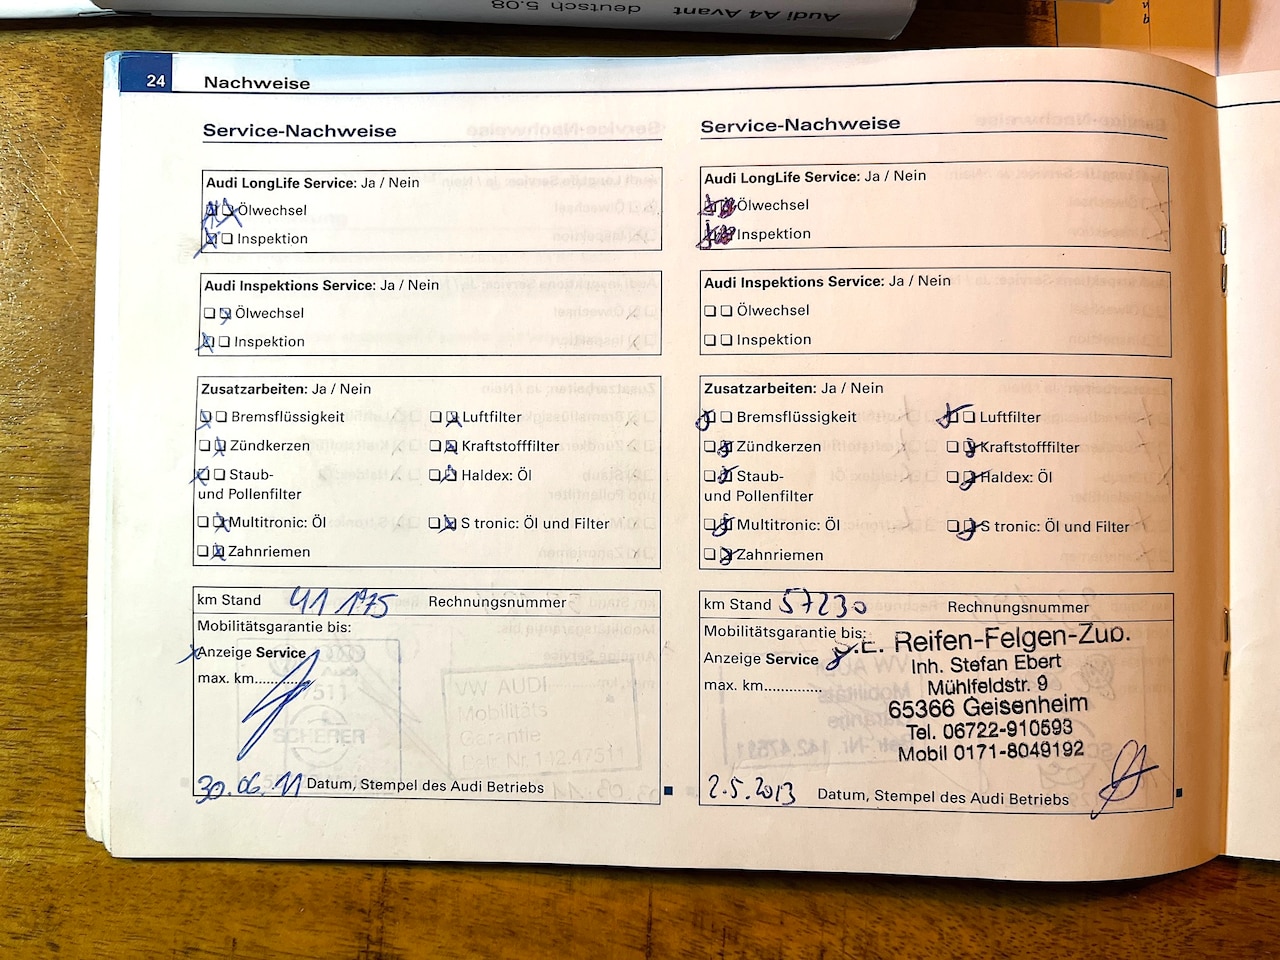 Audi A4 Avant deutsch 5.08
24 Nachweise
Service-Nachweise
Audi LongLife Service: Ja / Nein
Ölwechsel
Inspektion
Audi Inspektions Service: Ja / Nein
Ölwechsel
Inspektion
Zusatzarbeiten: Ja / Nein
Bremsflüssigkeit Luftfilter
Zündkerzen Kraftstofffilter
Staub- Haldex: Öl
und Pollenfilter
Multitronic: Öl S tronic: Öl und Filter
Zahnriemen
km Stand 41 175 Rechnungsnummer
Mobilitätsgarantie bis:
Anzeige Service
max. km..............
30.06.11 Datum, Stempel des Audi Betriebs
Service-Nachweise
Audi LongLife Service: Ja / Nein
Ölwechsel
Inspektion
Audi Inspektions Service: Ja / Nein
Ölwechsel
Inspektion
Zusatzarbeiten: Ja / Nein
Bremsflüssigkeit Luftfilter
Zündkerzen Kraftstofffilter
Staub- Haldex: Öl
und Pollenfilter
Multitronic: Öl S tronic: Öl und Filter
Zahnriemen
km Stand 57230 Rechnungsnummer
Mobilitätsgarantie bis:
Anzeige Service
max. km..............
Reifen-Felgen-Zub.
Inh. Stefan Ebert
Mühlfeldstr. 9
65366 Geisenheim
Tel. 06722-910593
Mobil 0171-8049192
2.5.2013 Datum, Stempel des Audi Betriebs